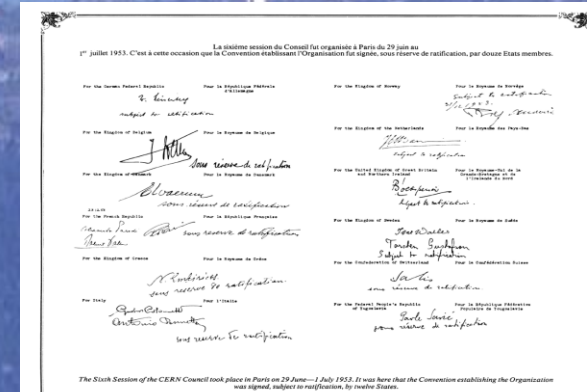 La sixième session du Conseil fut organisée à Paris du 29 juin au
1er juillet 1953. C'est à cette occasion que la Convention établissant l'Organisation fut signée, sous réserve de ratification, par douze Etats membres.
For the German Federal Republic Pour la République Fédérale
d'Allemagne
subject to ratification
For the Kingdom of Belgium Pour le Royaume de Belgique
sous réserve de ratification
For the Kingdom of Denmark Pour le Royaume de Danemark
sous réserve de ratification
For the French Republic Pour la République Française
sous réserve de ratification
For the Kingdom of Greece Pour le Royaume de Grèce
sous reserve de ratification.
For Italy Pour l'Italie
Antonio
sous reserve de ratification
For the Kingdom of Norway Pour le Royaume de Norvège
subject to ratification
For the Kingdom of the Netherlands Pour le Royaume des Pays-Bas
subject to ratification
For the United Kingdom of Great Britain Pour le Royaume-Uni de la
and Northern Ireland Grande-Bretagne et de
l'Irlande du Nord
subject to ratification.
For the Kingdom of Sweden Pour le Royaume de Suède
Torsten Gustafson
Subject to ratification
For the Confederation of Switzerland Pour la Confédération Suisse
sous réserve de ratification.
For the Federal People's Republic Pour la République Fédérative
of Yugoslavia Populaire de Yougoslavie
Pavle Savić
sous réserve de ratification
The Sixth Session of the CERN Council took place in Paris on 29 June—1 July 1953. It was here that the Convention establishing the Organization
was signed, subject to ratification, by twelve States.